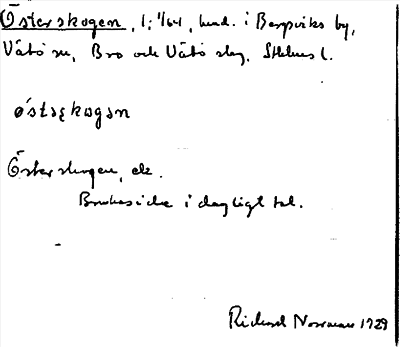 Österskogen, 1; 1/64, hmd. i Bergsviks by,
Vätö sn, Bro och Vätö skg, Sthlms l.
östsękogan
Österskogen, ek.
Brukas icke i dagligt tal.
Richard Norrman 1929